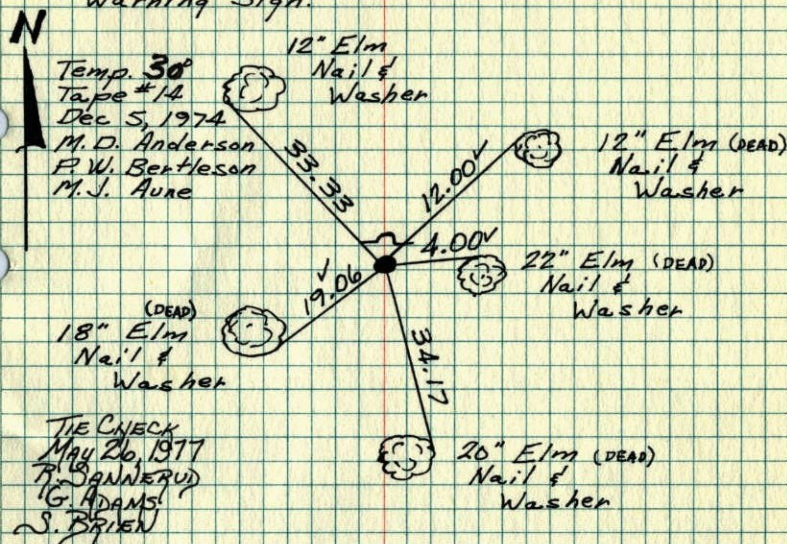 Warning Sign.
N
Temp. 30°
Tape #14
Dec 5, 1974
M. D. Anderson
P. W. Bertleson
M. J. Aune
12" Elm
Nail &
Washer
33.33
12.00✓
12" Elm (DEAD)
Nail &
Washer
4.00✓
22" Elm (DEAD)
Nail &
Washer
✓
19.06
(DEAD)
18" Elm
Nail &
Washer
34.17
20" Elm (DEAD)
Nail &
Washer
TIE CHECK
MAY 26, 1977
R. SANNERUD
G. ADAMS
S. BRIEN